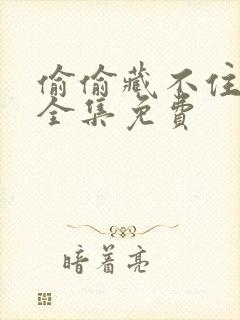 偷偷藏不住
全集免费
暗着亮